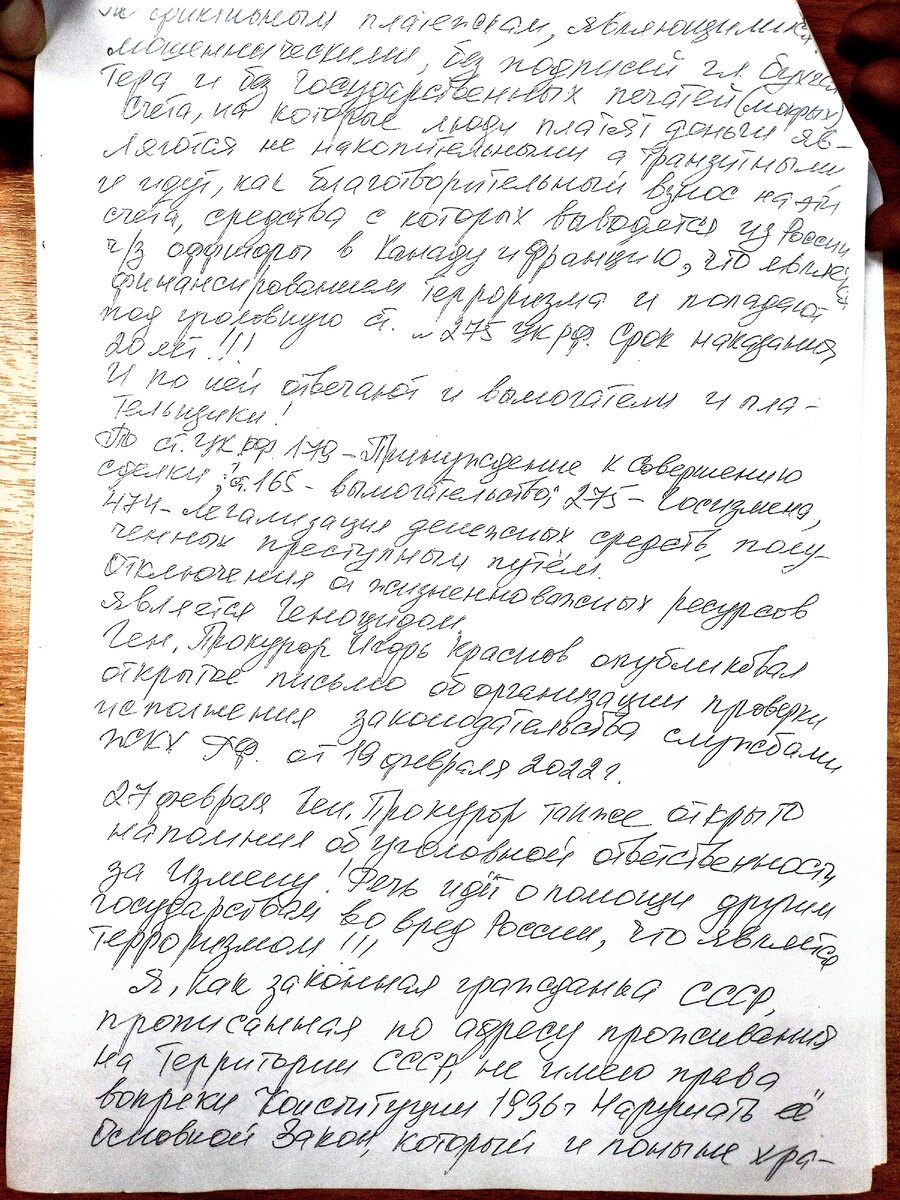 фиктивным платежам, являющимися
мошенническими, без подписей гл. бухгал
тера и без государственных печатей (мокрых)
Счета, на которые люди платят деньги яв-
ляются не накопительными а транзитными
и идут, как благотворительный взнос на эти
счета, средства с которых выводятся из России
ч/з оффшоры в Канаду и Францию, что является
финансированием терроризма и попадают
под уголовную ст. ~ 275 УК РФ. Срок наказания
20 лет!!!
И по ней отвечают и вымогатели и пла-
тельщики!
По ст. УК РФ. 179 - Принуждение к совершению
сделки; ст. 165 - вымогательство; 275 - Госизмена,
474 - легализация денежных средств, полу-
ченных преступным путём.
Отключения от жизненноважных ресурсов
является Геноцидом.
Ген. Прокурор Игорь Краснов опубликовал
открытое письмо об организации проверки
исполнения законодательства службами
ЖКХ РФ. от 19 февраля 2022 г.
27 февраля Ген. Прокурор также открыто
напомнил об уголовной ответственности
за Измену! Речь идёт о помощи другим
государствам во вред России, что является
терроризмом!!!
Я, как законная гражданка СССР,
прописанная по адресу проживания
на Территории СССР, не имею права
вопреки Конституции 1936 г нарушать её
Основной Закон, который и поныне хра-